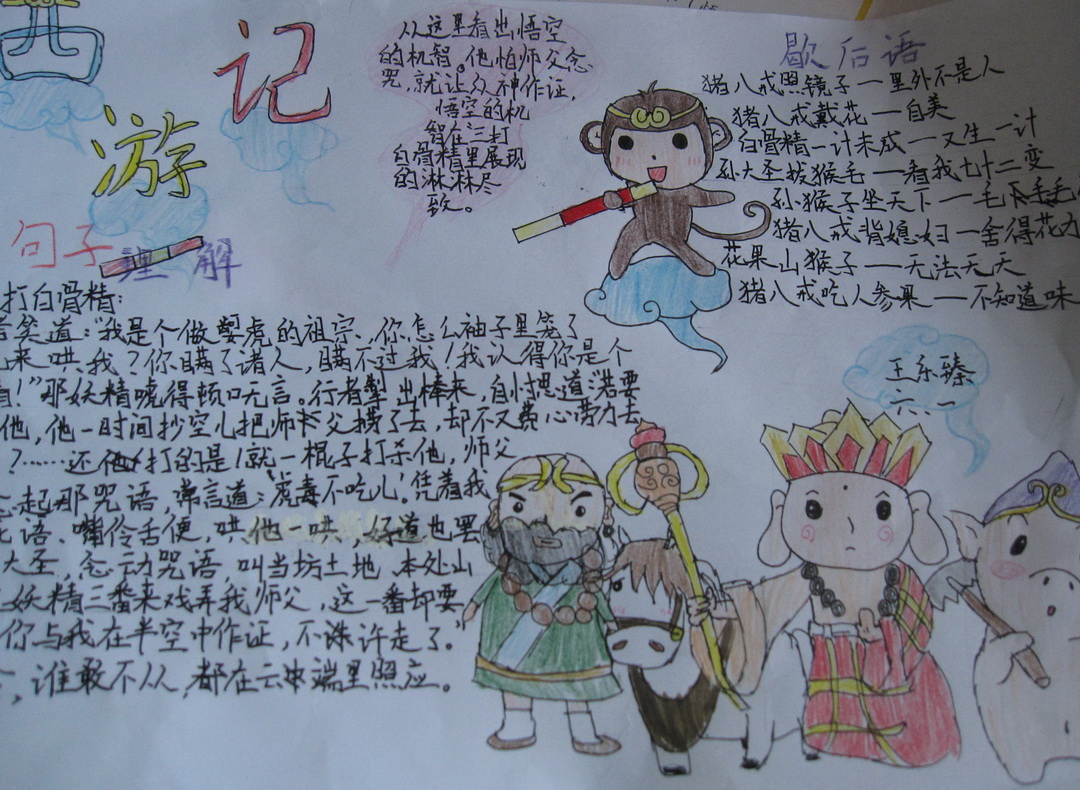 西
游
记
句子理解
从这里看出悟空
的机智。他怕师父念
咒,就让众神作证,
悟空的机
智在三打
白骨精里展现
的淋淋尽
致。
歇后语
猪八戒照镜子一里外不是人
猪八戒戴花一自美
白骨精一计未成一又生一计
孙大圣拔猴毛一看我七十二变
孙猴子坐天下一毛
猪八戒背媳妇一舍得花力
花果山猴子一无法无天
猪八戒吃人参果一不知道味
打白骨精:
笑道:"我是个做 虎的祖宗、你怎么袖子里笼了
来哄我?你瞒了诸人,瞒不过我!我认得你是个
!"那妖精唬得顿口无言。行者掣出棒来,自忖思道:"若要
他,他一时间抄空儿把师父捞了去,却不又费心劳力去
?……还 打的是!就一棍子打杀他,师父
念起那咒语,常言道:'虎毒不吃儿'。凭着我
语、嘴伶舌便,哄他一哄,好道也罢
大圣,念动咒语,叫当坊土地、本处山
妖精三番来戏弄我师父,这一番却要
你与我在半空中作证,不 许走了。"
,谁敢不从,都在云 端里照应。
王乐臻
六.一